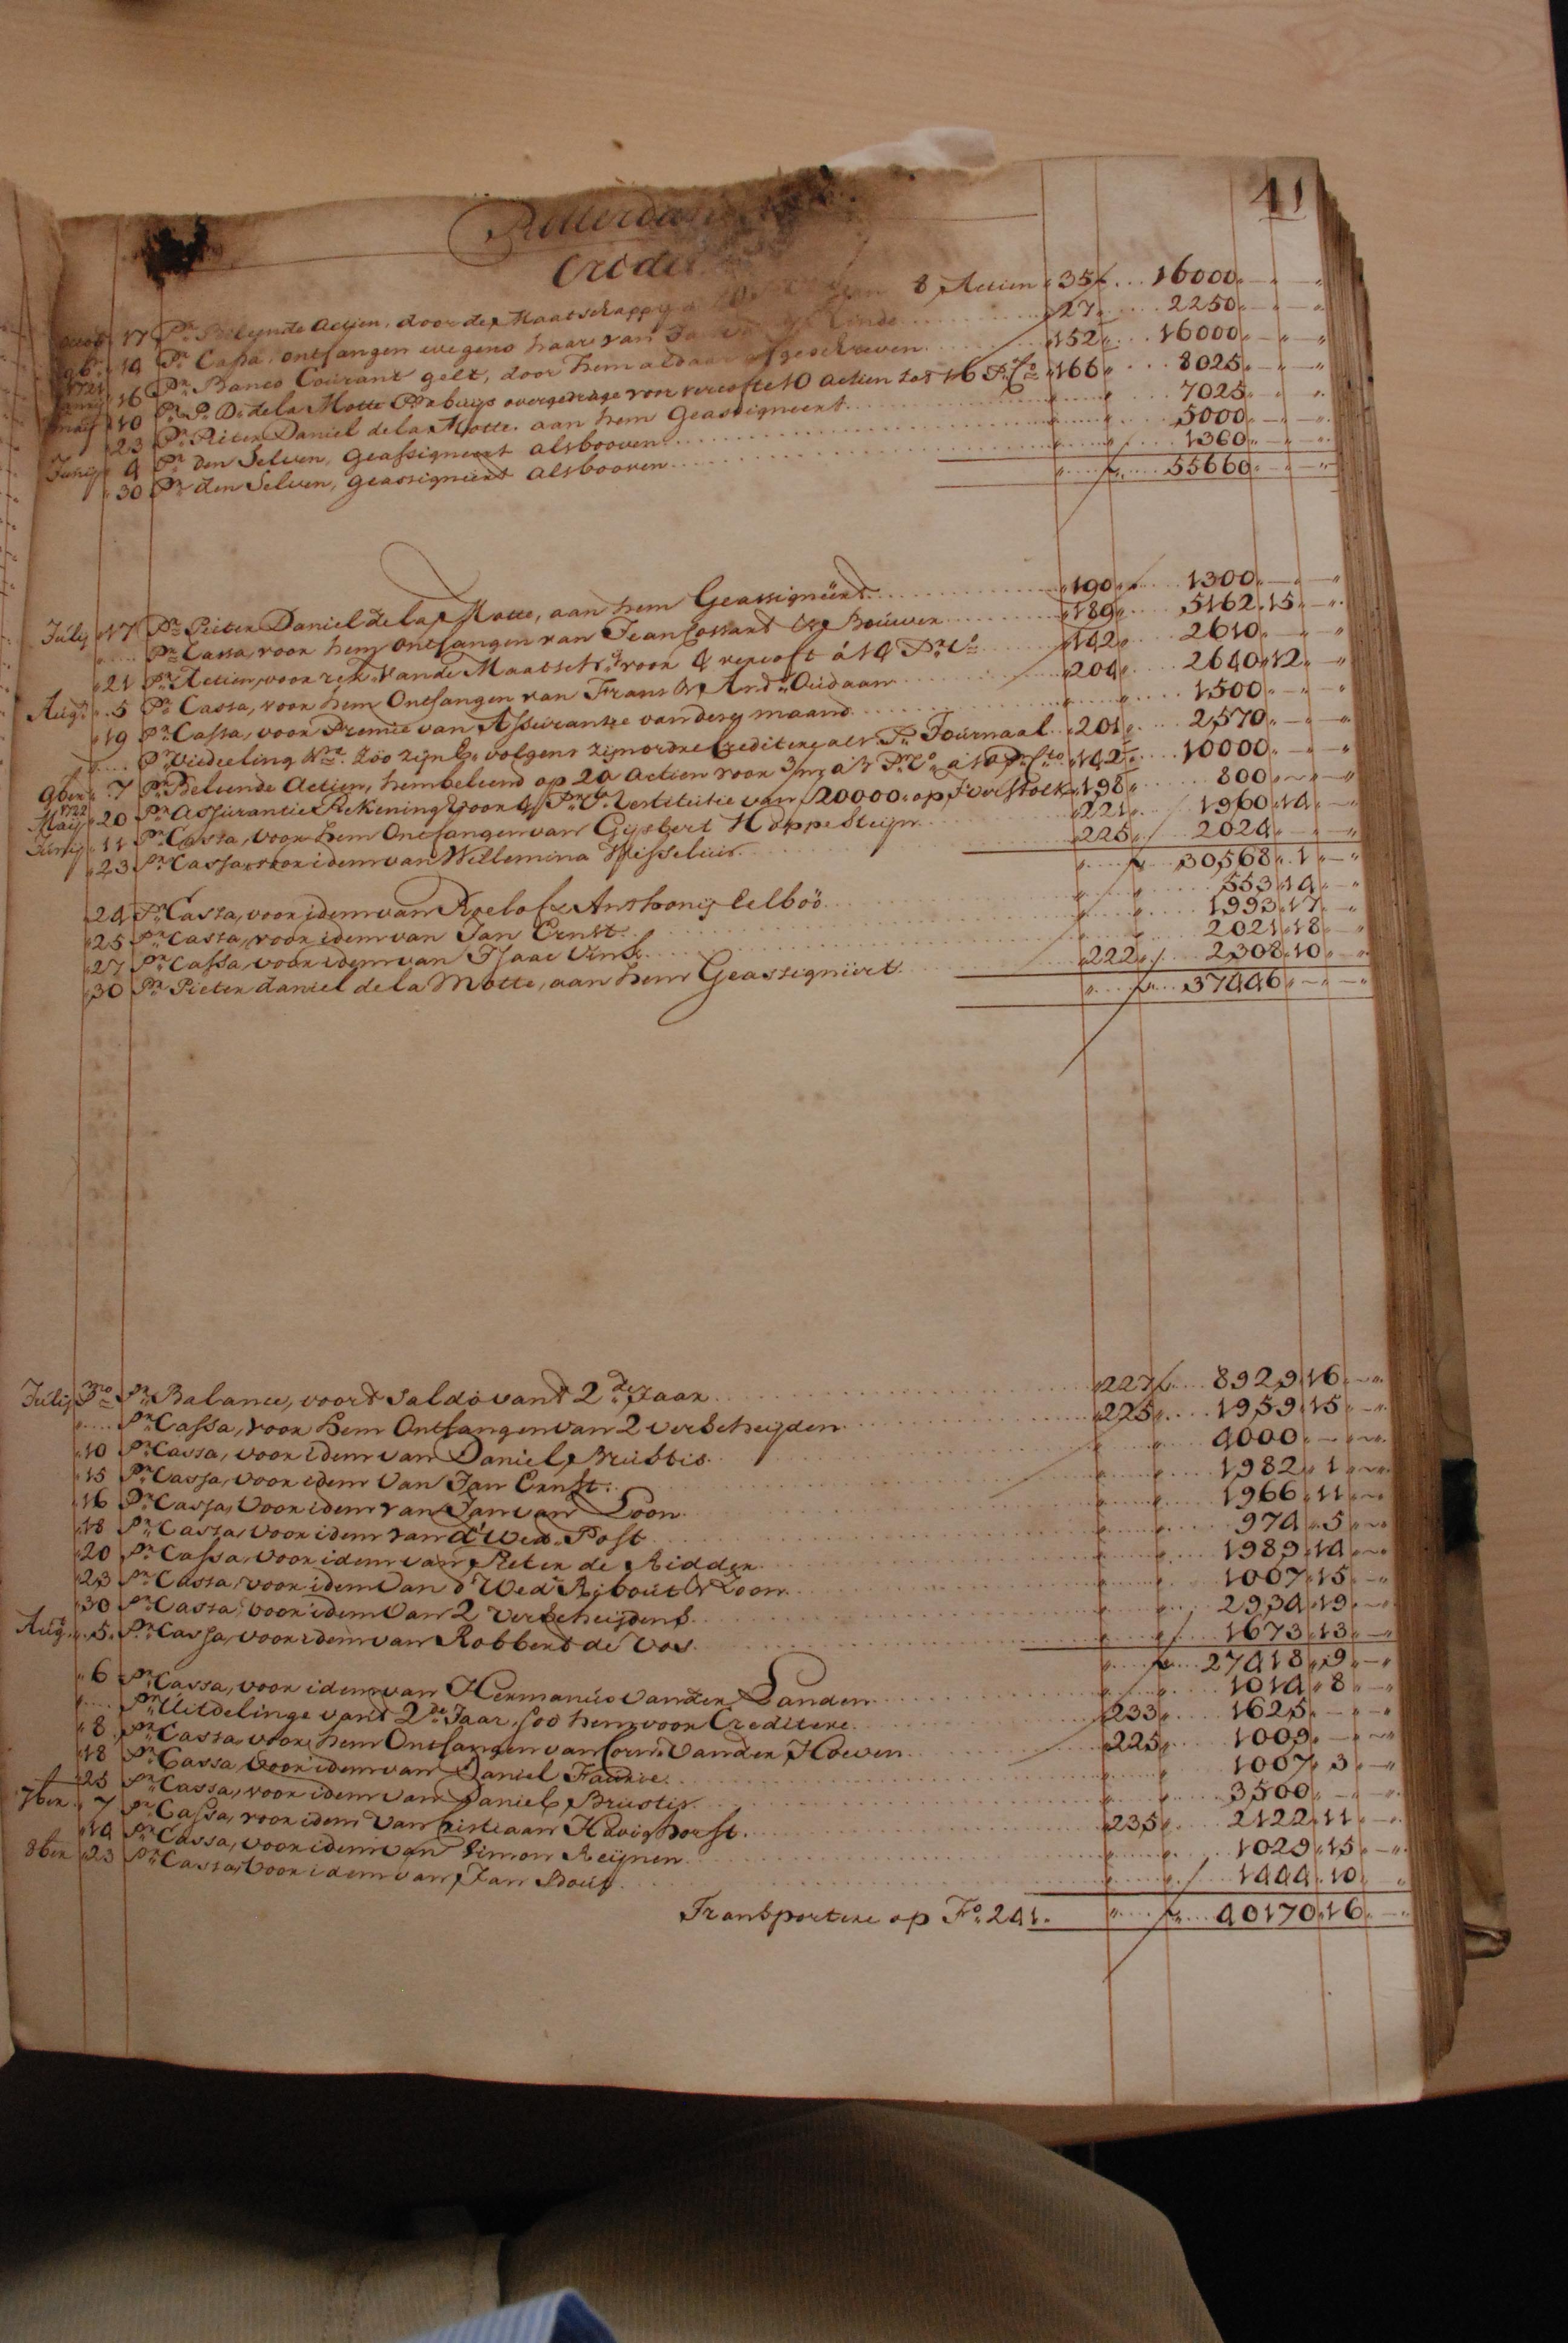 41
Rotterdam
Credit
17 Pr Beleynde Actien, door de Maatschappy 8 Actien 35 f 16000
14 Pr Cassa, ontfangen wegens haar van 27 2250
1721 16 Pr Banco Courant gelt, door hem aldaar afgeschreven 152 16000
10 Pr P. D. de la Motte Pr buijs overgedrage voor vercofte 10 actien tot 16 Pr Co 166 8025
23 Pr Pieter Daniel de la Motte, aan hem Geassigneert 7025
Junij 4 Pr den Selven, Geassigneert alsbooven 5000
30 Pr den Selven, geassigneert alsbooven 1360
f 55660
July 17 Pr Pieter Daniel de la Motte, aan hem Geassigneert 190 1300
Pr Cassa, voor hem ontfangen van Jean Cossart & Bouwer 189 5162 15
21 Pr Actien, voor rek. vande Maatsch. voor 4 vercoft á 14 Pr Co 142 2610
Aug. 5 Pr Cassa, voor hem Ontfangen van Frans & And. Oudaan 204 2640 12
19 Pr Cassa, voor Premie van Assurantie van desy maand 1500
Pr Uitdeeling No. 2oo zijn E. volgens zijn ordre Crediteere als Pr Journaal 201 2570
9ber 7 Pr Beleende Actien, hem beleend op 20 actien voor 3/m 142 10000
1722 Maij 20 Pr Assurantie Rekening voor 4 Pr Co Restitutie van f 20000 op J. Verstolk 198 800
Junij 11 Pr Cassa, voor hem Ontfangen van Gijsbert Hoppesteijn 221 1960 14
23 Pr Cassa, voor idem van Willemina Wisselius 225 2024
f 30568 1
24 Pr Cassa, voor idem van Roelof & Anthonij Eelboo 553 14
25 Pr Cassa, voor idem van Jan Ernst 1993 17
27 Pr Cassa, voor idem van Isaac Vink 2021 18
30 Pr Pieter daniel de la Motte, aan hem Geassigneert 222 2308 10
f 37446
Julij Pmo Pr Balance, voor 't Saldo van 't 2de Jaar 227 f 8929 16
Pr Cassa, voor hem Ontfangen van 2 verscheijden 225 1959 15
10 Pr Cassa, voor idem van Daniel Brustis 4000
15 Pr Cassa, voor idem van Jan Ernst 1982 1
16 Pr Cassa, voor idem van Jan van Loon 1966 11
18 Pr Cassa, voor idem van d'Wed. Post 974 5
20 Pr Cassa, voor idem van Pieter de Ridder 1989 14
23 Pr Cassa, voor idem van d'Wed. Ribout & Zoon 1007 15
30 Pr Cassa, voor idem van 2 Verscheijdens 2934 19
Aug. 5 Pr Cassa, voor idem van Robbert de Vos 1673 13
f 27418 9
6 Pr Cassa, voor idem van Hermanus vander Sanden 1014 8
Pr Uitdelinge van 't 2de Jaar, soo hem voor Creditere 233 1625
8 Pr Cassa voor hem Ontfangen van Corn. vander Hoeven 225 1009
18 Pr Cassa, voor idem van Daniel Faurie 1007 3
25 Pr Cassa, voor idem van Daniel Brustis 3500
7ber 7 Pr Cassa, voor idem van Cristiaan Havighorst 235 2122 11
14 Pr Cassa, voor idem van Simon Reijnen 1029 15
8ber 23 Pr Cassa, voor idem van Jan Bouf 1444 10
Transportere op Fo. 241. f 40170 16